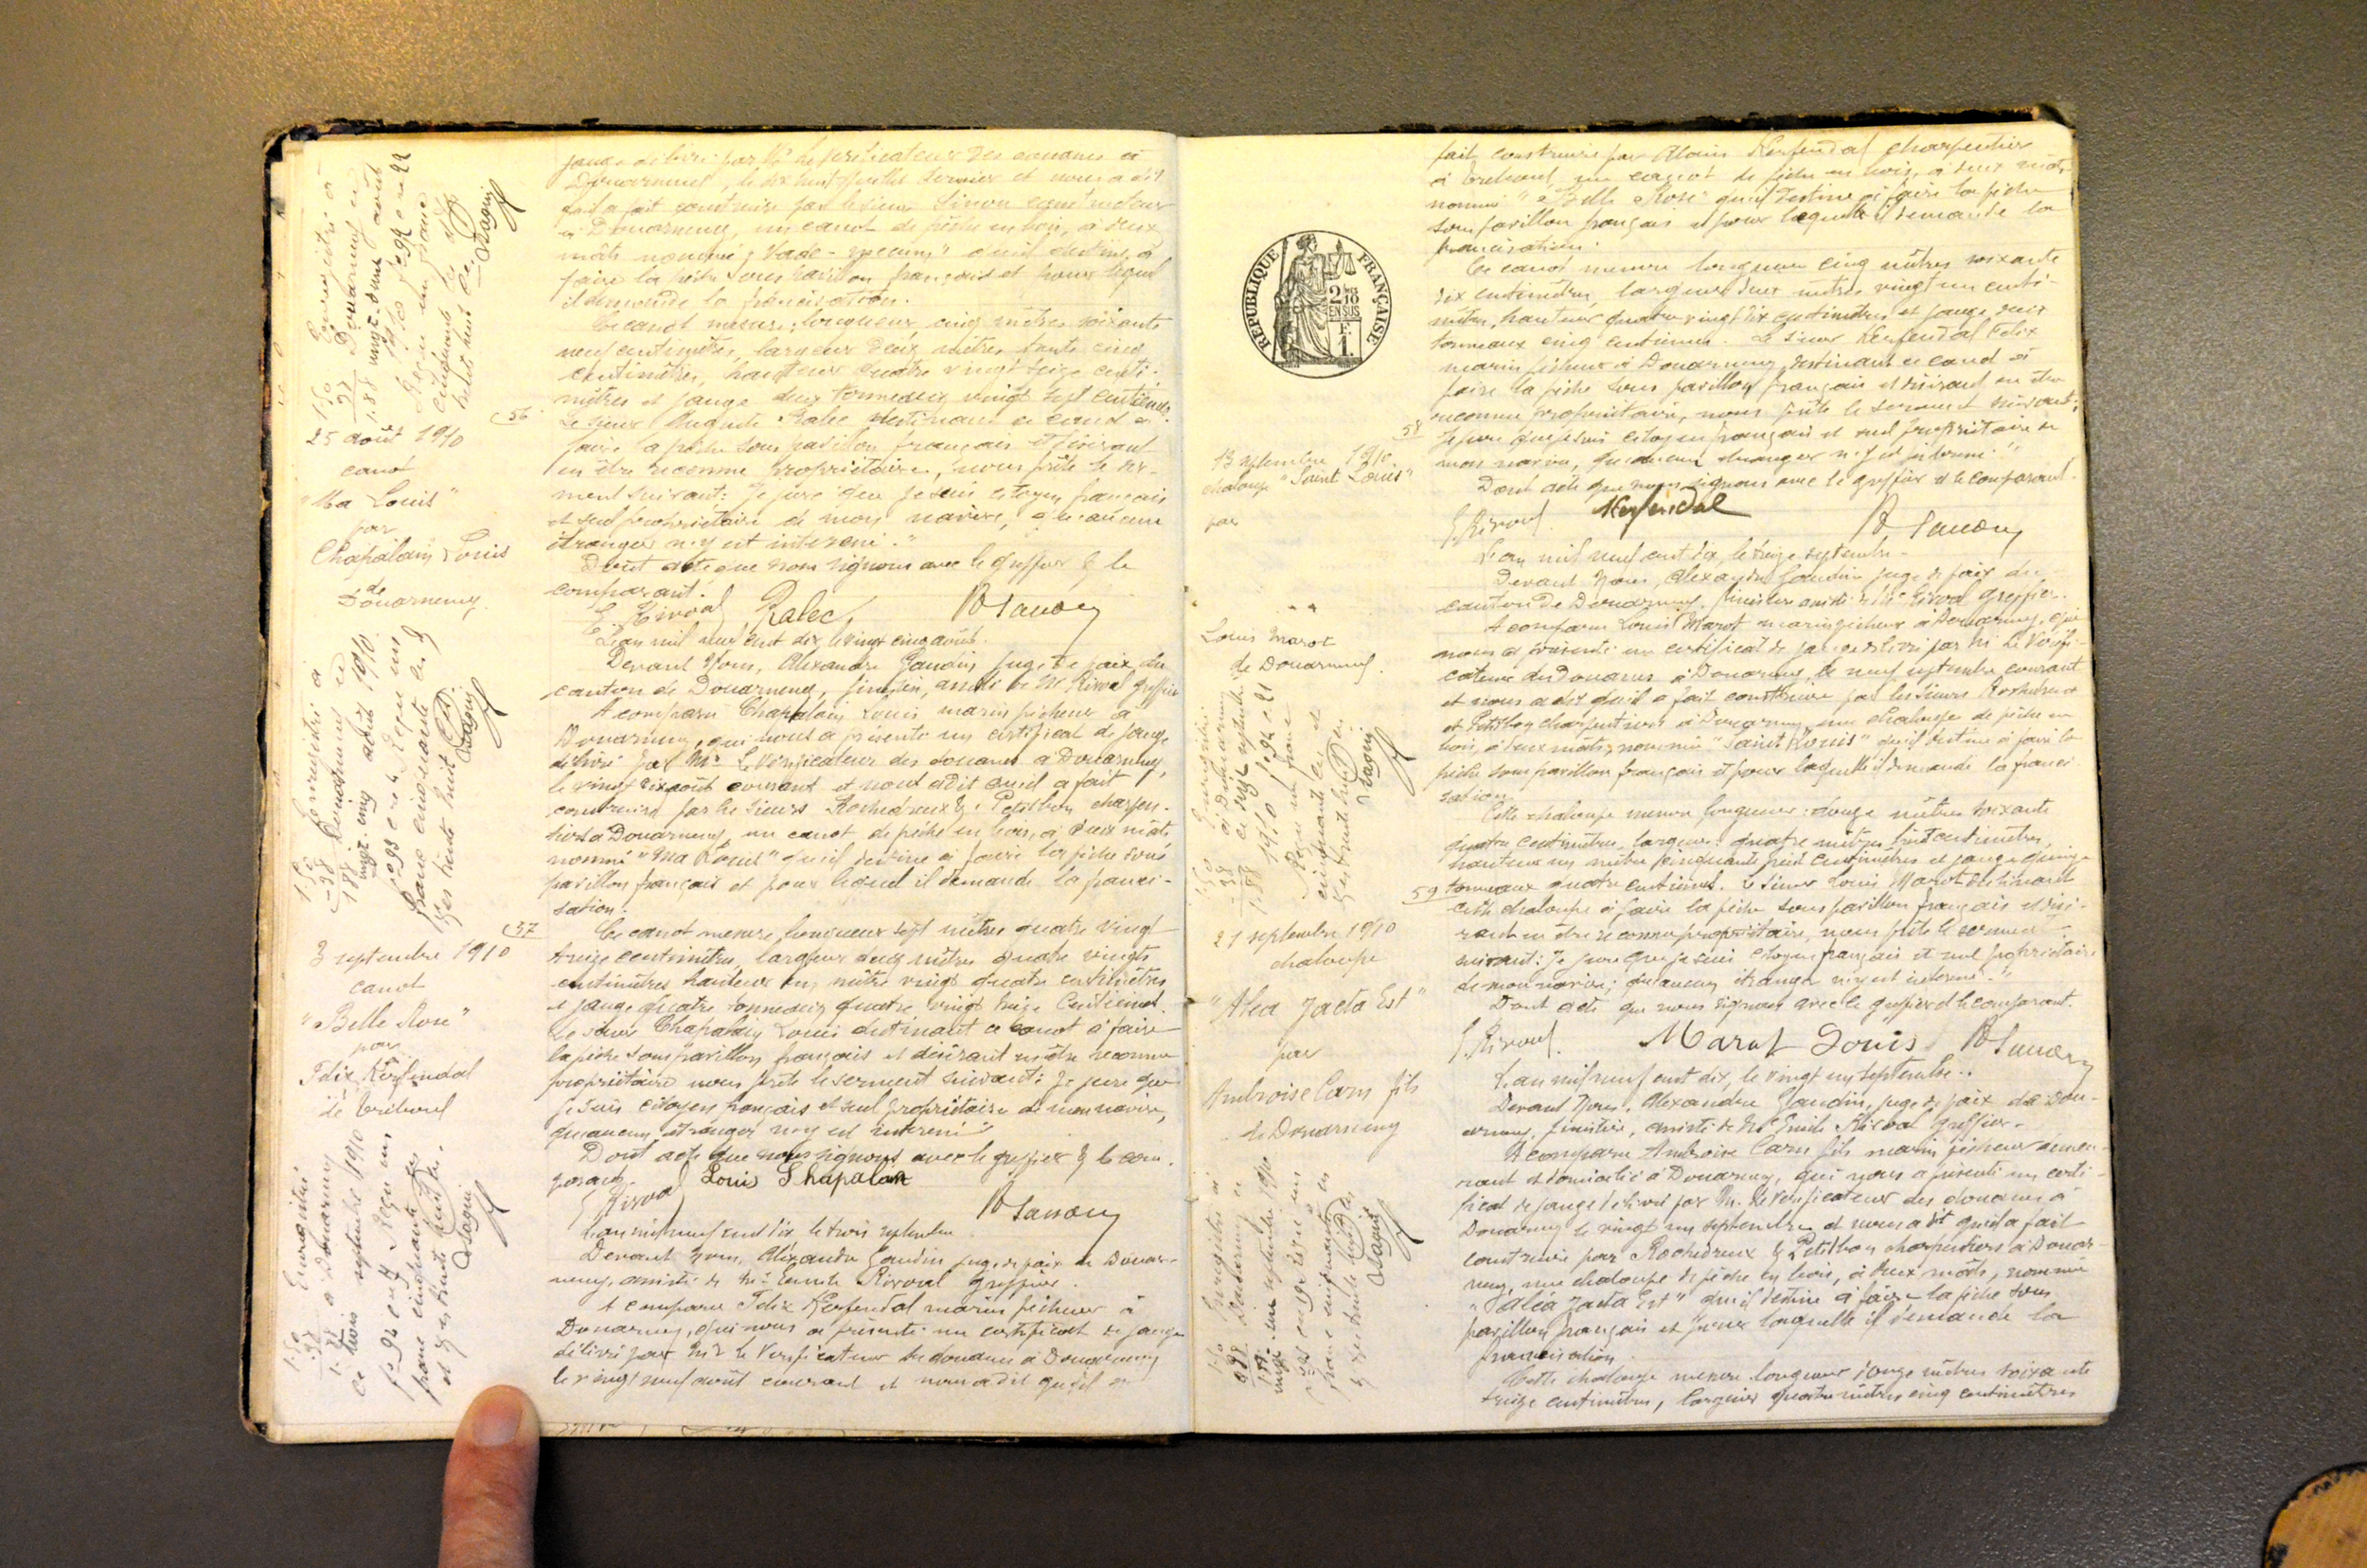 jauge délivré par Mr le Vérificateur des douanes à
Douarnenez, le dix huit juillet dernier et nous a dit
qu'il a fait construire par le sieur constructeur
à Douarnenez, un canot de pêche en bois, à deux
mâts nommé "Vade-mecum" qu'il destine à
faire la pêche sous pavillon français et pour lequel
il demande la francisation.
Ce canot mesure: longueur cinq mètres soixante
neuf centimètres, largeur deux mètres trente cinq
centimètres, hauteur quatre vingt seize centi-
mètres et jauge deux tonneaux vingt sept centièmes.
Le sieur Auguste Ralec destinant ce canot à
faire la pêche sous pavillon français et désirant
en être reconnu propriétaire, nous prête le ser-
ment suivant: "Je jure que je suis citoyen français
et seul propriétaire de mon navire, qu'aucun
étranger n'y est intervenu."
Dont acte que nous signons avec le greffier & le
comparant.
E. Rivoal Ralec
56
25 août 1910
canot
"Ma Louis"
par
Chapalain Louis
de
Douarnenez.
L'an mil neuf cent dix, le vingt cinq août.
Devant Nous, Alexandre Gaudin juge de paix du
canton de Douarnenez, finistère, assisté de Mr Rivoal greffier
A comparu Chapalain Louis marin pêcheur à
Douarnenez, qui nous a présenté un certificat de jauge
délivré par Mr Le Vérificateur des douanes à Douarnenez,
le vingt août courant et nous a dit qu'il a fait
construire par les sieurs Rochedreux & Petitbon charpen-
tiers à Douarnenez, un canot de pêche en bois, à deux mâts
nommé "Ma Louis" qu'il destine à faire la pêche sous
pavillon français et pour lequel il demande la franci-
sation.
Ce canot mesure, longueur sept mètres quatre vingt
treize centimètres, largeur deux mètres quatre vingts
centimètres hauteur un mètre vingt quatre centimètres
et jauge quatre tonneaux quatre vingt treize centièmes.
Le sieur Chapalain Louis destinant ce canot à faire
la pêche sous pavillon français et désirant en être reconnu
propriétaire nous prête le serment suivant: Je jure que
je suis citoyen français et seul propriétaire de mon navire,
qu'aucun étranger n'y est intervenu"
Dont acte que nous signons avec le greffier & le com-
parant.
E. Rivoal Louis Chapalain
57
3 septembre 1910
canot
"Belle Rose"
par
Félix Kerfendal
de Tréboul
L'an mil neuf cent dix le trois septembre
Devant Nous, Alexandre Gaudin juge de paix de Douar-
nenez, assisté de Mr Emile Rivoal greffier.
A comparu Félix Kerfendal marin pêcheur à
Douarnenez, qui nous a présenté un certificat de jauge
délivré par Mr le Vérificateur des douanes à Douarnenez
le vingt neuf août courant et nous a dit qu'il a
Enregistré à
Douarnenez ce
vingt deux août
Reçu un franc
cinquante
Enregistré à
Douarnenez ce
vingt cinq août 1910
Reçu un
franc cinquante
et trente huit
Enregistré
à Douarnenez
ce trois septembre 1910
Reçu un
franc cinquante
et trente huit
REPUBLIQUE FRANÇAISE
2/10
EN SUS
F.
1.
fait construire par Alain Kerfendal charpentier
à Tréboul, un canot de pêche en bois, à deux mâts
nommé "Belle Rose" qu'il destine à faire la pêche
sous pavillon français et pour lequel il demande la
francisation.
Ce canot mesure longueur cinq mètres soixante
dix centimètres, largeur deux mètres vingt un centi-
mètres, hauteur quatre vingt dix centimètres et jauge
tonneaux cinq centièmes. Le sieur Kerfendal Félix
marin pêcheur à Douarnenez, destinant ce canot à
faire la pêche sous pavillon français et désirant en être
reconnu propriétaire, nous prête le serment suivant:
"Je jure que je suis citoyen français et seul propriétaire de
mon navire, qu'aucun étranger n'y est intervenu."
Dont acte que nous signons avec le greffier et le comparant.
E. Rivoal. Kerfendal
58
13 septembre 1910
chaloupe "Saint Louis"
par
Louis Marot
de Douarnenez.
L'an mil neuf cent dix, le treize septembre.
Devant Nous, Alexandre Gaudin juge de paix du
canton de Douarnenez, finistère assisté de Mr Rivoal greffier.
A comparu Louis Marot marin pêcheur à Douarnenez, qui
nous a présenté un certificat de jauge délivré par Mr Le Vérifi-
cateur des Douanes à Douarnenez, le neuf septembre courant
et nous a dit qu'il a fait construire par les sieurs Rochedreux
et Petitbon charpentiers à Douarnenez, une chaloupe de pêche en
bois, à deux mâts, nommée "Saint Louis" qu'il destine à faire la
pêche sous pavillon français et pour laquelle il demande la franci
sation.
Cette chaloupe mesure longueur: douze mètres soixante
quatre centimètres, largeur: quatre mètres huit centimètres,
hauteur un mètre cinquante centimètres et jauge quinze
tonneaux quatre centièmes. Le sieur Louis Marot destinant
cette chaloupe à faire la pêche sous pavillon français et dési-
rant en être reconnu propriétaire, nous prête le serment
suivant: Je jure que je suis citoyen français et seul propriétaire
de mon navire; qu'aucun étranger n'y est intervenu."
Dont acte que nous signons avec le greffier et le comparant.
E. Rivoal. Marot Louis
59
21 septembre 1910
chaloupe
"Aléa Jacta Est"
par
Ambroise Carn fils
de Douarnenez
L'an mil neuf cent dix, le vingt un septembre.
Devant Nous, Alexandre Gaudin, juge de paix de Dou-
arnenez, finistère, assisté de Mr Emile Rivoal greffier.
A comparu Ambroise Carn fils marin pêcheur demeu-
rant et domicilié à Douarnenez, qui nous a présenté un certi-
ficat de jauge délivré par Mr. Le Vérificateur des douanes à
Douarnenez le vingt un septembre et nous a dit qu'il a fait
construire par Rochedreux & Petitbon charpentiers à Douar-
nenez, une chaloupe de pêche en bois, à deux mâts, nommée
"Aléa Jacta Est" qu'il destine à faire la pêche sous
pavillon français et pour laquelle il demande la
francisation.
Cette chaloupe mesure longueur douze mètres soixante
treize centimètres, largeur quatre mètres cinq centimètres
Enregistré
à Douarnenez
ce treize septembre
1910
Reçu un franc
cinquante
et trente huit
Enregistré à
Douarnenez ce
vingt un septembre 1910
Reçu un
franc cinquante
& trente huit